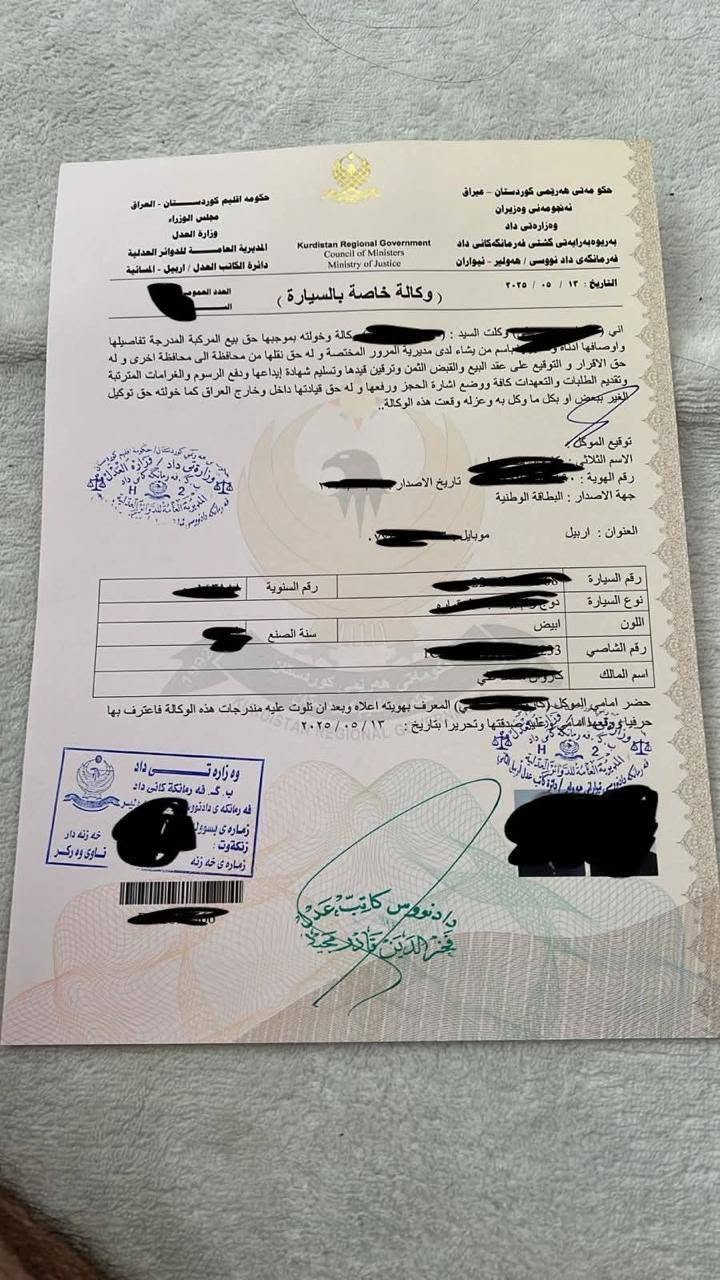 حكومه اقليم كوردستان - العراق
مجلس الوزراء
وزارة العدل
المديرية العامة للدوائر العدلية
دائرة الكاتب العدل / اربيل - المسائية
العدد العمومي
Kurdistan Regional Government
Council of Ministers
Ministry of Justice
حكومەتی هەرێمی کوردستان - عیراق
ئەنجومەنی وەزیران
وەزارەتی داد
بەڕێوەبەرایەتی گشتی فەرمانگەکانی داد
فەرمانگەی داد نووسی / هەولێر - ئێواران
التاريخ : ١٣ / ٠٥ / ٢٠٢٥
( وكالة خاصة بالسيارة )
اني ( وكلت السيد : ( كالة وخولته بموجبها حق بيع المركبة المدرجة تفاصيلها
واوصافها ادناه باسم من يشاء لدى مديرية المرور المختصة و له حق نقلها من محافظة الى محافظة اخرى و له
حق الاقرار و التوقيع على عقد البيع والقبض الثمن وترقين قيدها وتسليم شهادة إيداعها ودفع الرسوم والغرامات المترتبة
وتقديم الطلبات والتعهدات كافة ووضع اشارة الحجز ورفعها و له حق قيادتها داخل وخارج العراق كما خولته حق توكيل
الغير ببعض او بكل ما وكل به وعزله وقعت هذه الوكالة..
توقيع الموكل :
الاسم الثلاثي :
رقم الهوية : تاريخ الاصدار
جهة الاصدار : البطاقة الوطنية
العنوان : اربيل موبايل
رقم السيارة رقم السنوية
نوع السيارة دوج
اللون ابيض سنة الصنع
رقم الشاصي
اسم المالك
حضر امامي الموكل ( ) المعرف بهويته اعلاه وبعد ان تلوت عليه مندرجات هذه الوكالة فاعترف بها
حرفيا و وقعها امامي وعليه صدقتها وتحريرا بتاريخ : ١٣ / ٠٥ / ٢٠٢٥
وەزارەتی داد
ب. گ. فەرمانگە کانی داد
فەرمانگەی دادنوو
ژمارەی پسوول
ڕێکەوت :
ژمارەی خەزنە
خەزنە دار
ناوی وەرگر
دادنووس كاتب عدل
فخرالدين قادر مجيد